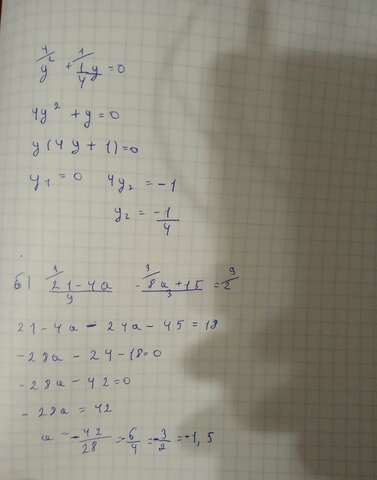 4/ y² + 1/ 1/4 y = 0
4y² + y = 0
y(4y + 1) = 0
y₁ = 0 4y₂ = -1
y₂ = -1/4
б) 1/ (21 - 4a)/9 - 3/ (8a + 15)/3 = 9/ 2
21 - 4a - 24a - 45 = 18
-28a - 24 - 18 = 0
-28a - 42 = 0
-28a = 42
a = -42/28 = -6/4 = -3/2 = -1,5